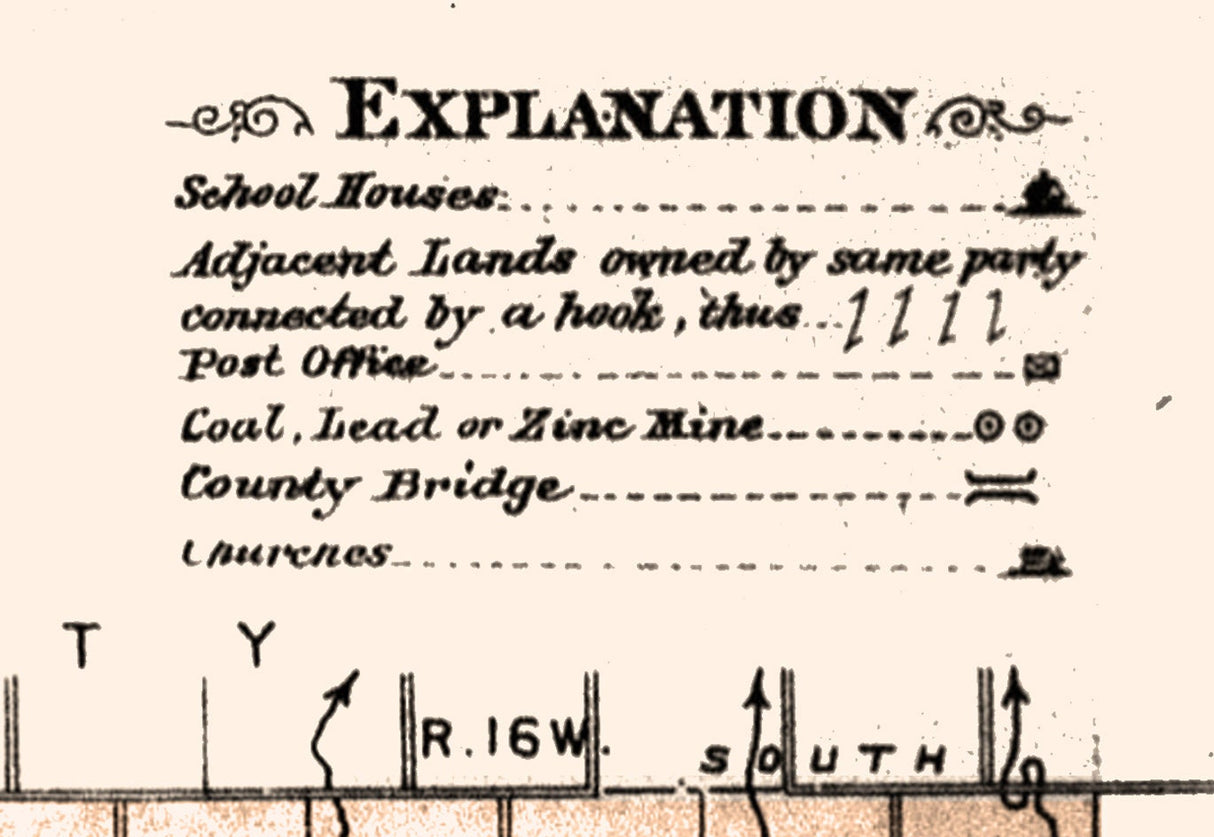 EXPLANATION
School Houses
Adjacent Lands owned by same party
connected by a hook, thus
Post Office
Coal, Lead or Zinc Mine
County Bridge
Churches
T Y
R. 16 W.
SOUTH